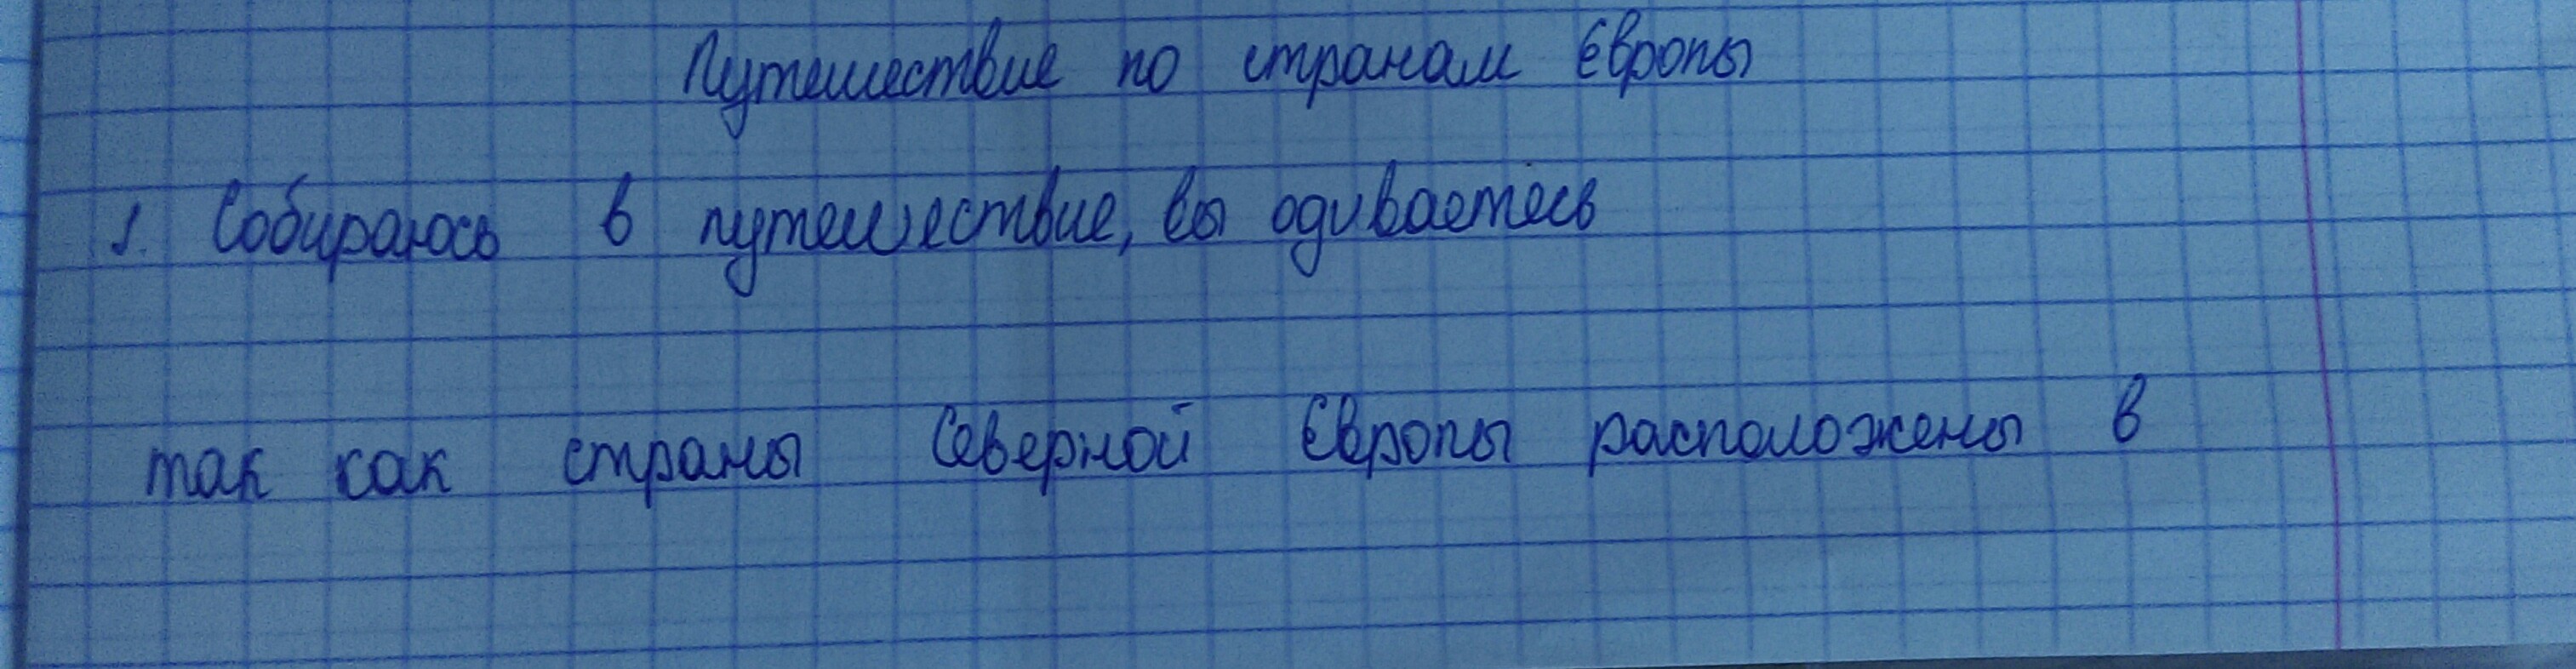 Путешествие по странам Европы
1. Собираюсь в путешествие, вы одиваетесь
так как страны Северной Европы расположены в